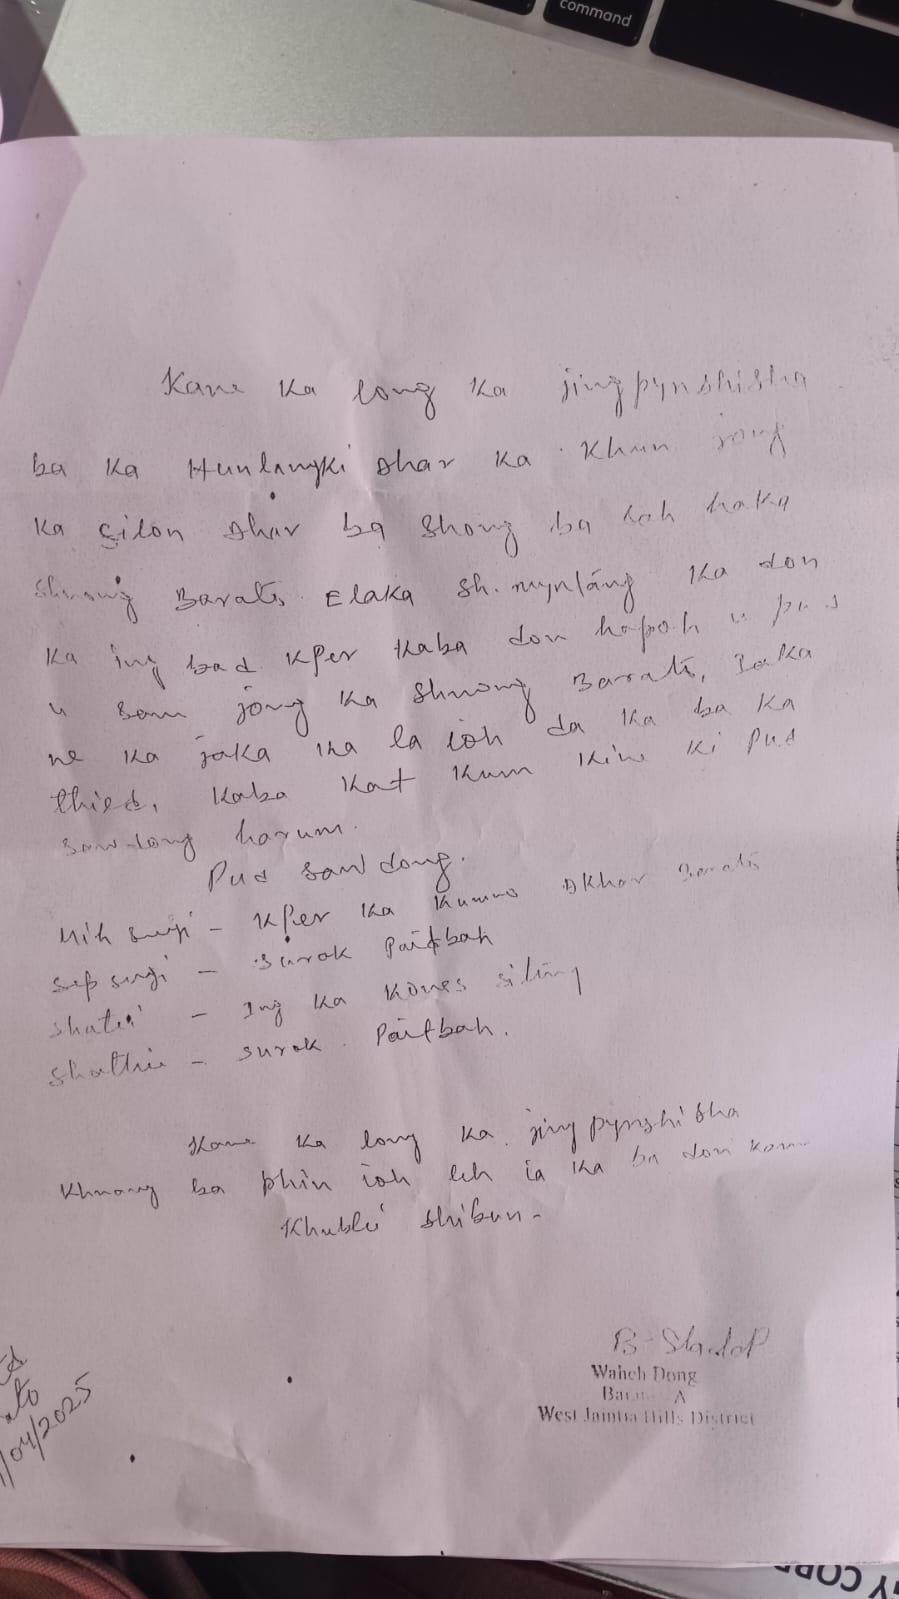 command
Kane ka long ka jingpynshisha
ba ka Hunlangki Dhar ka khun jong
ka Silon Dhar ba shong ba sah haka
Shnong Barato Elaka Sh. nynláng ka don
ka ïng bad kper kaba don hapoh u pud
u sam jong ka Shnong Barato,
ne ka jaka ka la ïoh da ka ba ka
thied, kaba kat kum kine ki pud
sawdong harum.
Pud sawdong.
Mih sngi - kper ka Dkhar Barato
sep sngi - surok Paitbah
Shatei - Ing ka
Shathie - surok Paitbah.
Kane ka long ka jingpynshisha
khnang ba phin ïoh leh ïa ka ba don kam
Khublei shibun -
Waheh Dong
A
West Jaintia Hills District
/04/2025
COPY